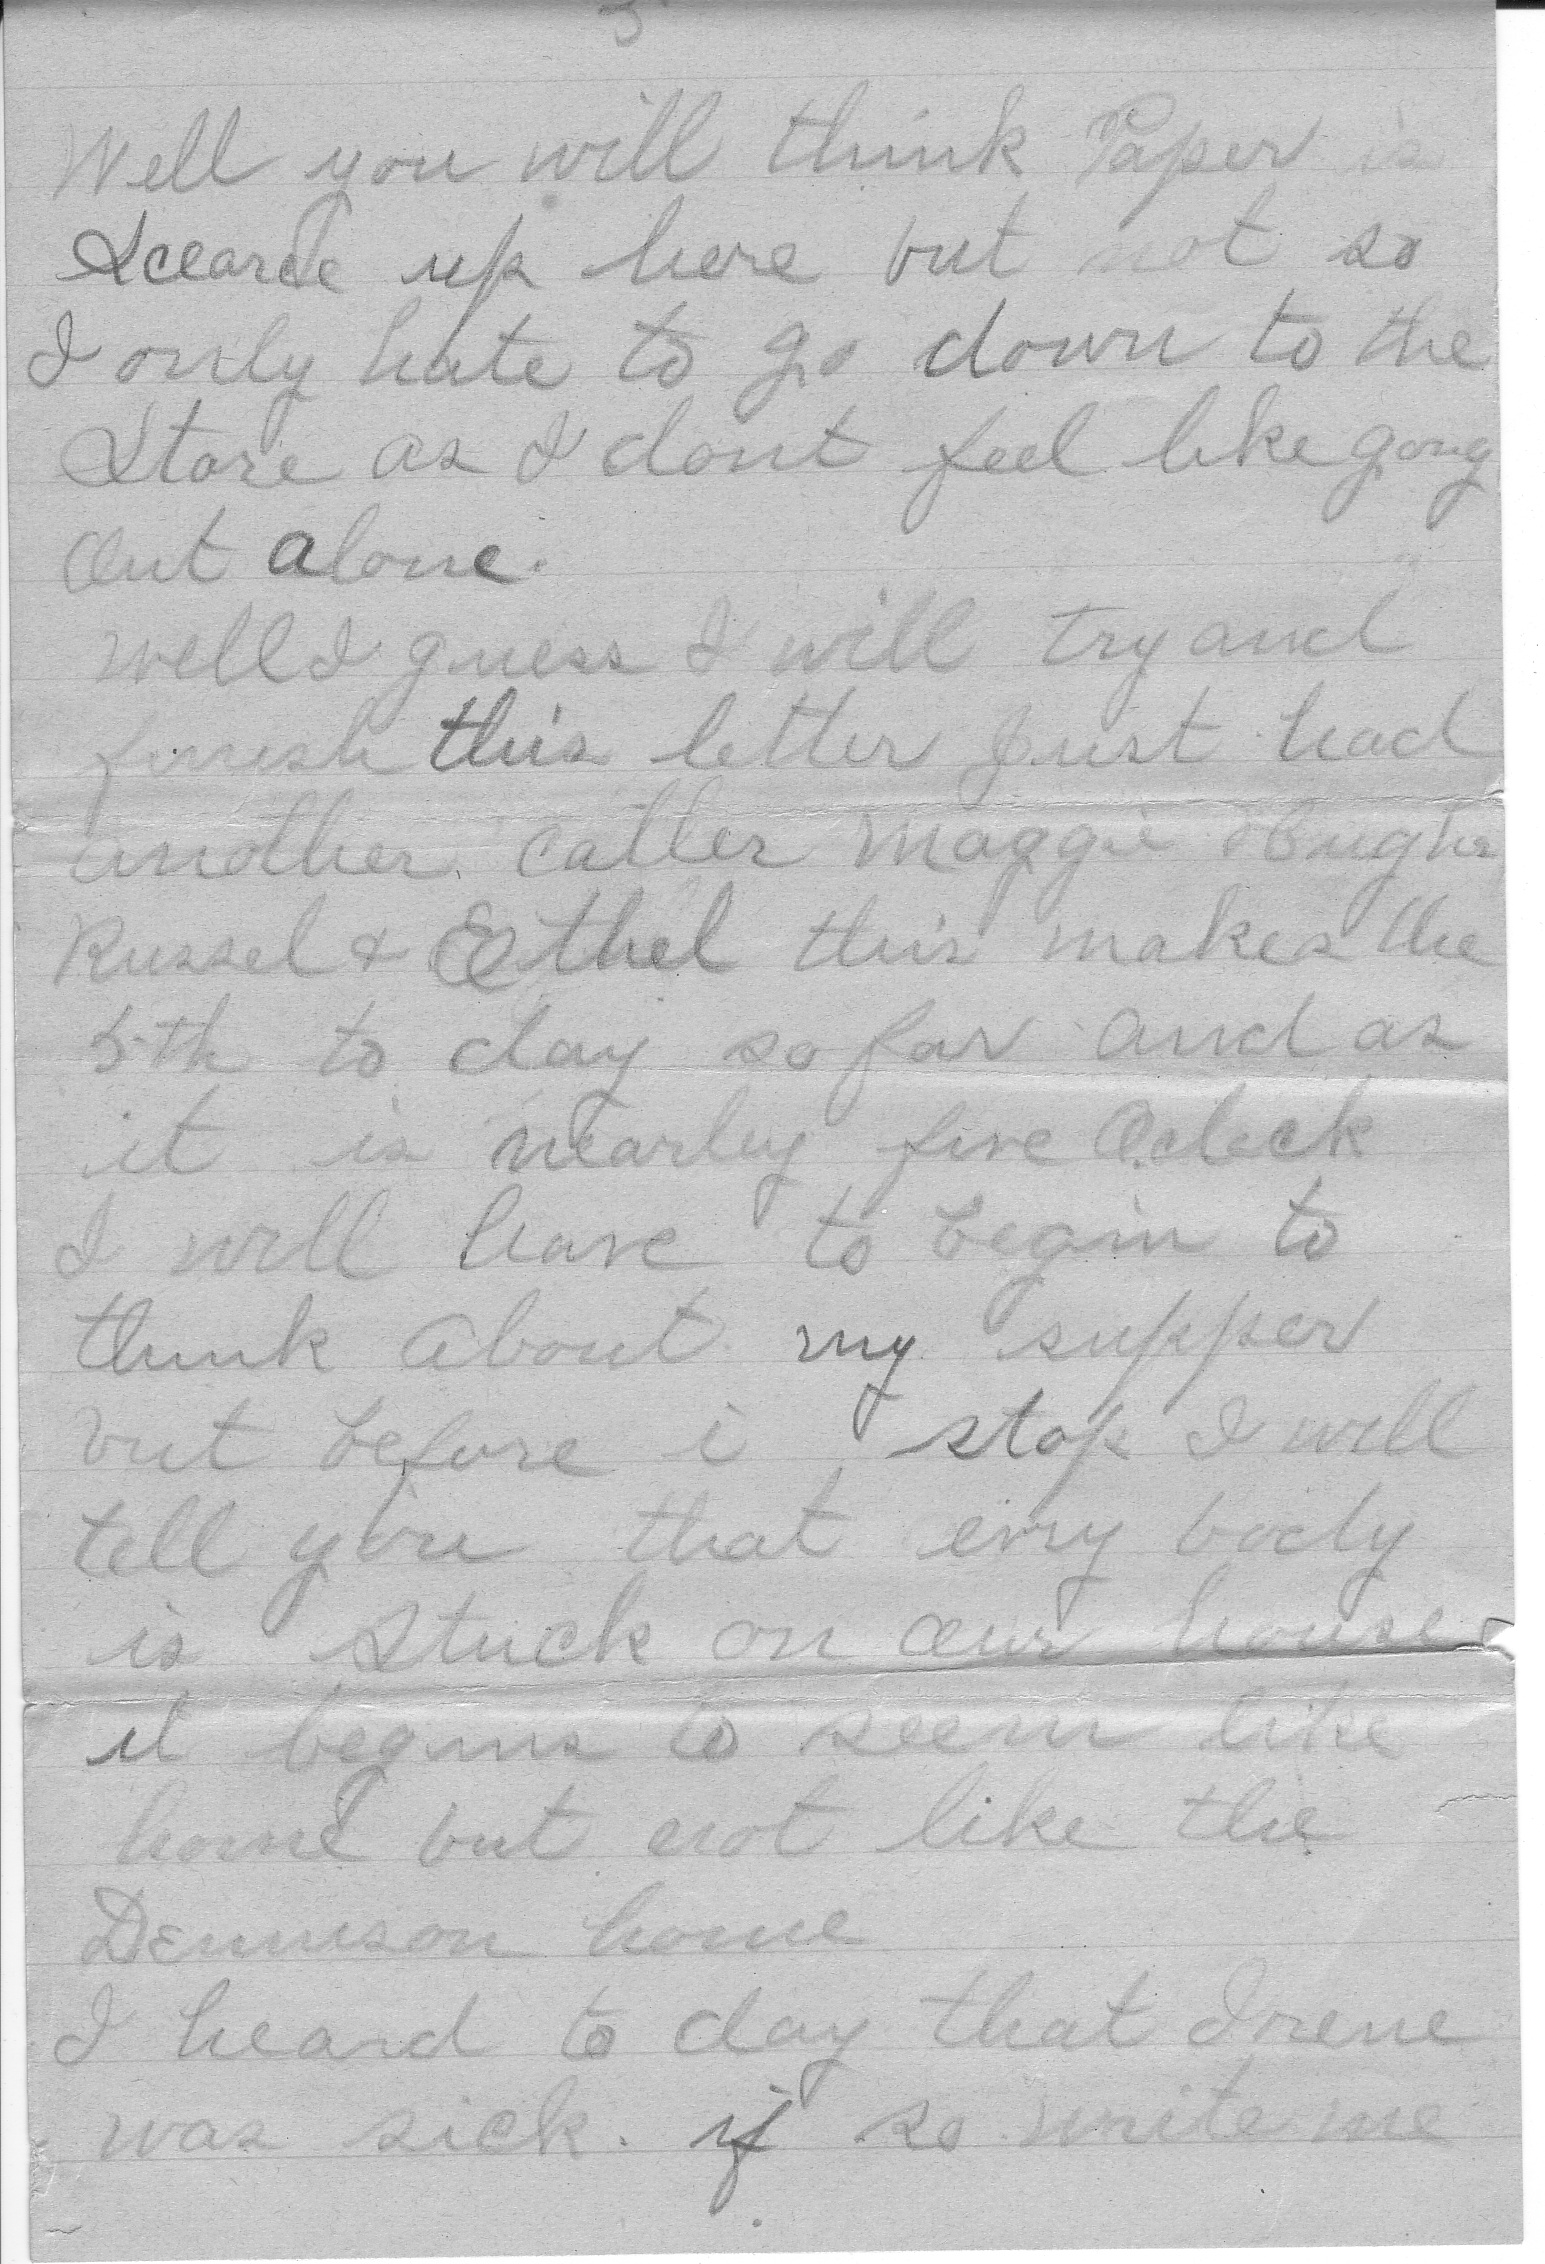 5
Well you will think Paper is
Scearce up here but not so
I only hate to go down to the
Store as I dont feel like gong
Out alone.
Well I guess I will try and
finish this letter Just had
another caller Maggie
Russel & Ethel this makes the
5th to day so far and as
it is nearley five Oclock
I will have to begin to
think about my supper
but before i stop I will
tell you that evry body
is Stuck on Our house
it begins to seem like
home but not like the
Dennison home
I heard to day that Irene
was sick. if so write me